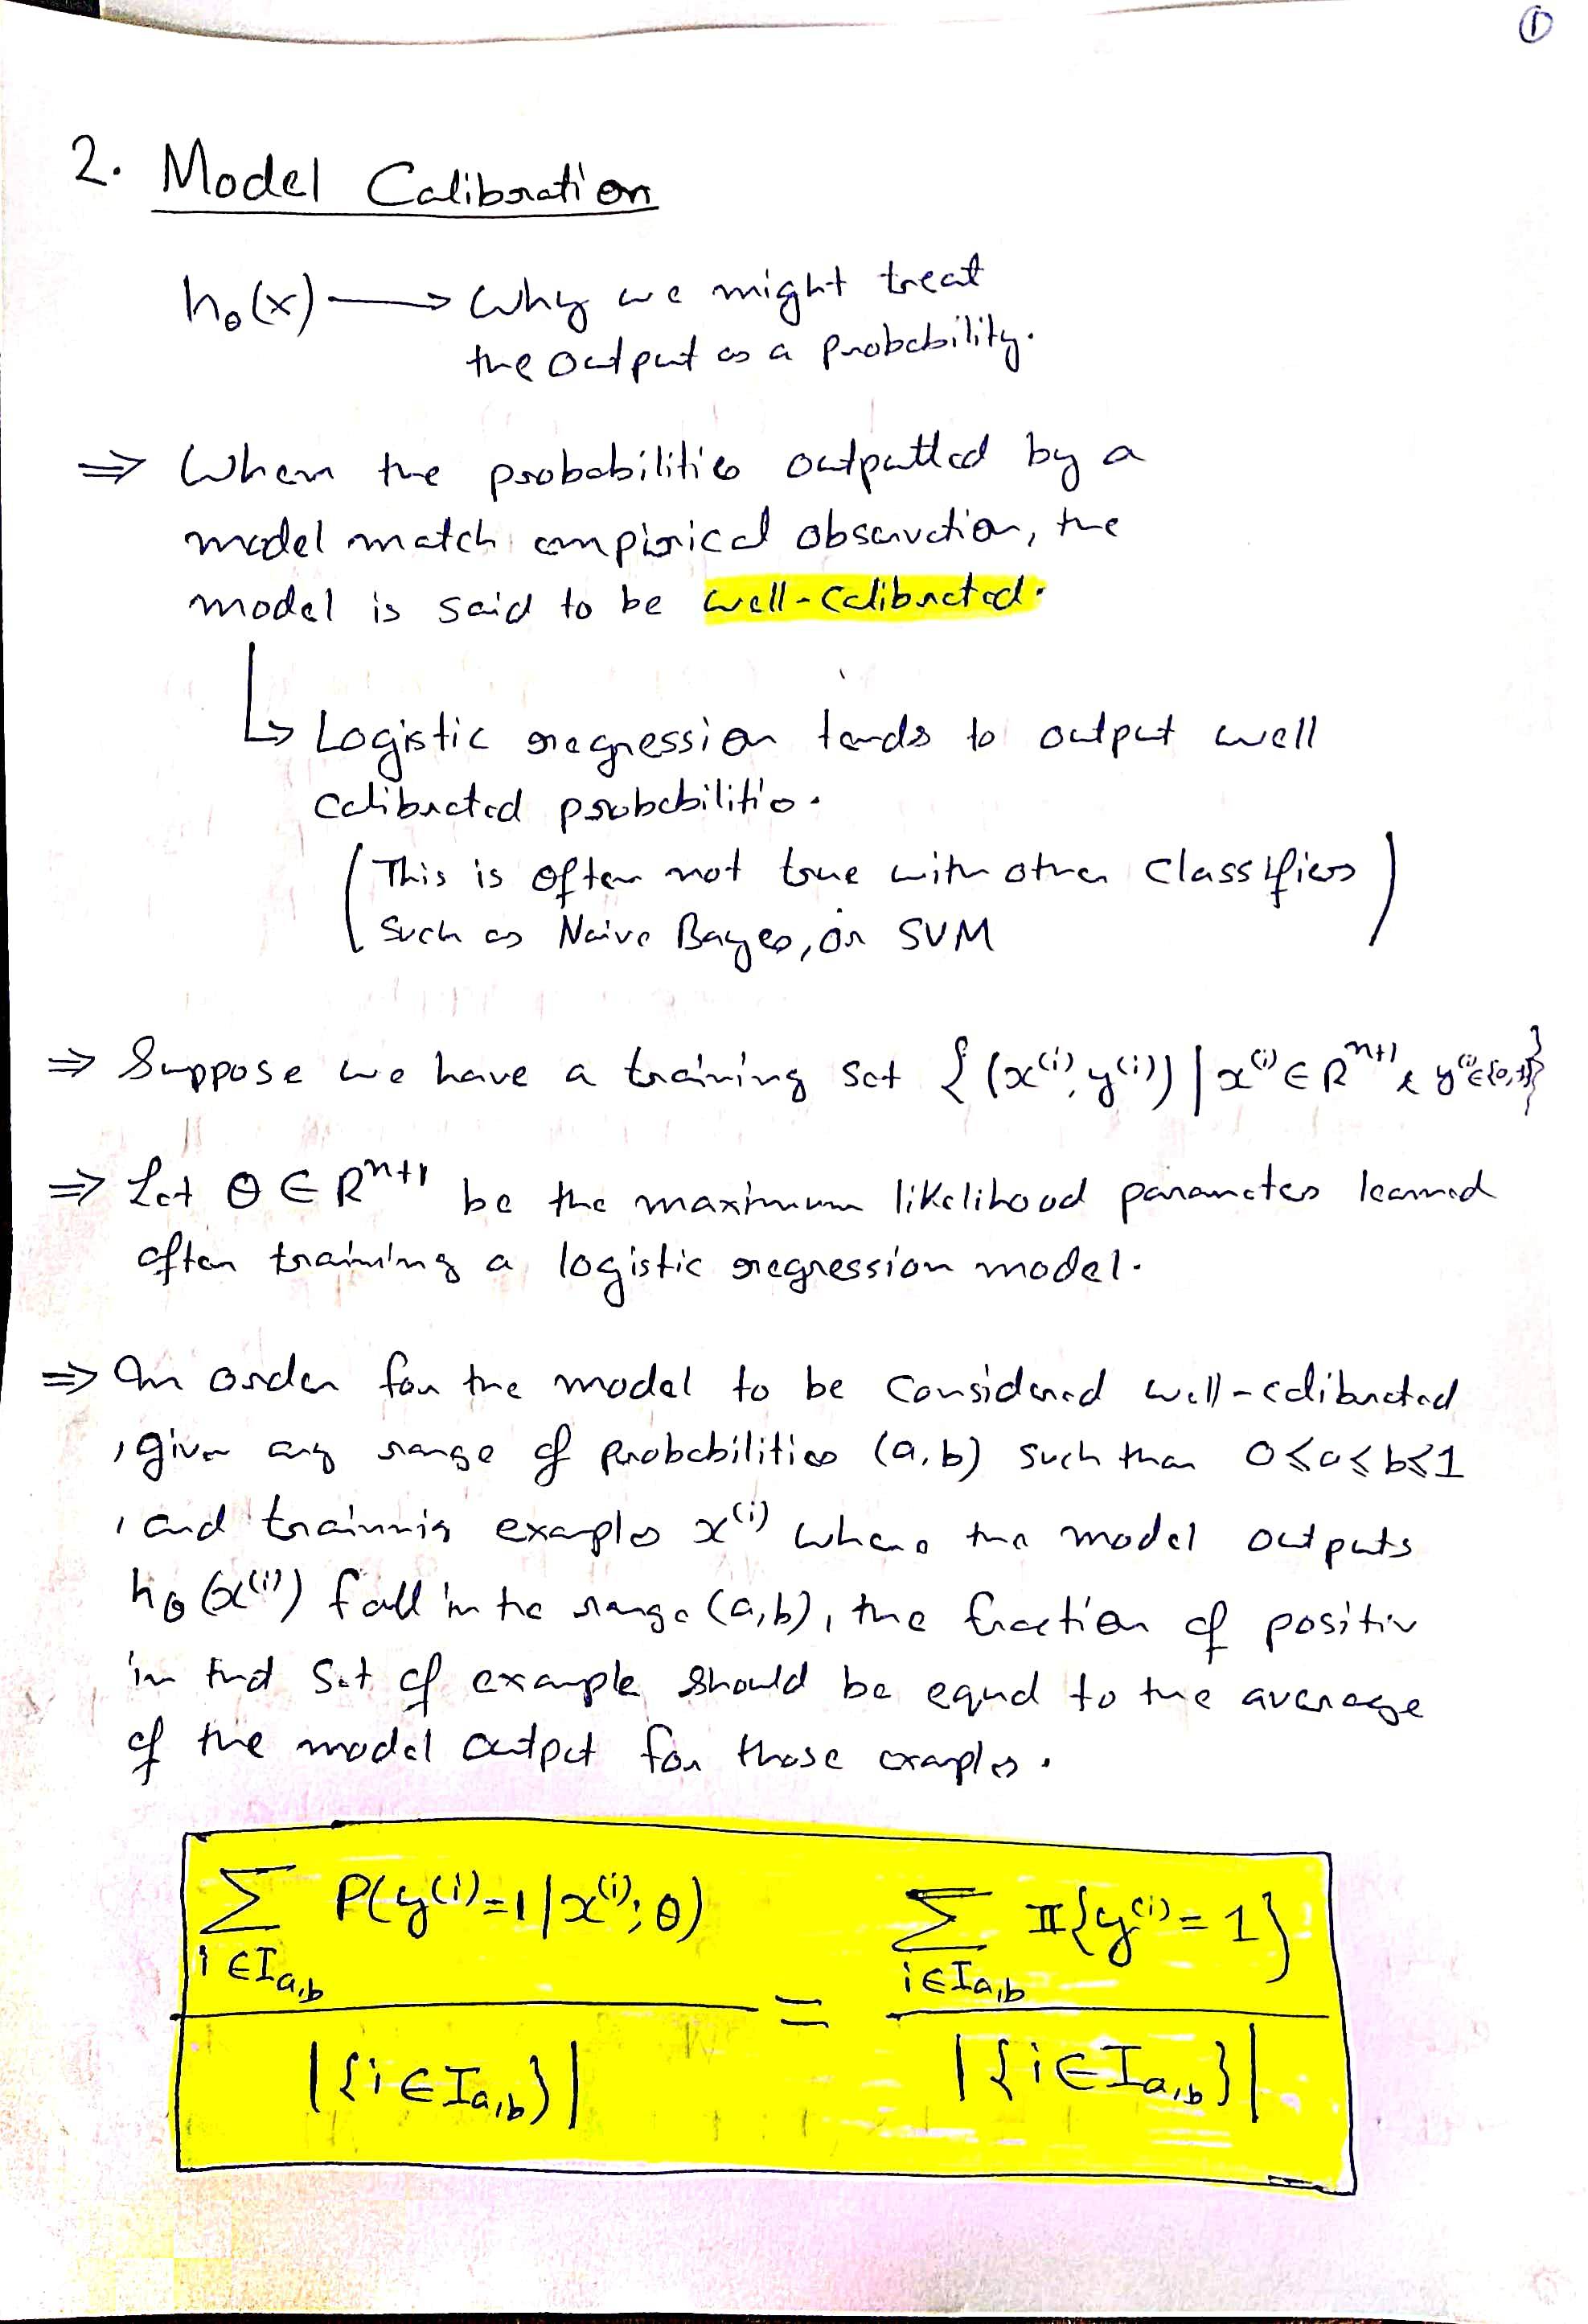 ①
2. Model Calibration
hθ(x) ⟶ Why we might treat
the output as a probability.
⇒ When the probabilities outputted by a
model match empirical observation, the
model is said to be well-calibrated.
↳ Logistic regression tends to output well
calibrated probabilities.
(This is often not true with other classifiers
such as Naive Bayes, or SVM)
⇒ Suppose we have a training set {(x⁽ⁱ⁾, y⁽ⁱ⁾) | x⁽ⁱ⁾ ∈ Rⁿ⁺¹ & y⁽ⁱ⁾ ∈ {0,1}}
⇒ Let θ ∈ Rⁿ⁺¹ be the maximum likelihood parameters learned
after training a logistic regression model.
⇒ In order for the model to be considered well-calibrated
, given any range of probabilities (a,b) such than 0≤a≤b≤1
, and training examples x⁽ⁱ⁾ where the model outputs
hθ(x⁽ⁱ⁾) fall in the range (a,b), the fraction of positiv
in that set of example should be equal to the average
of the model output for those examples.
∑_{i∈I_{a,b}} P(y⁽ⁱ⁾=1|x⁽ⁱ⁾;θ) / |{i∈I_{a,b}}| = ∑_{i∈I_{a,b}} 𝕀{y⁽ⁱ⁾=1} / |{i∈I_{a,b}}|